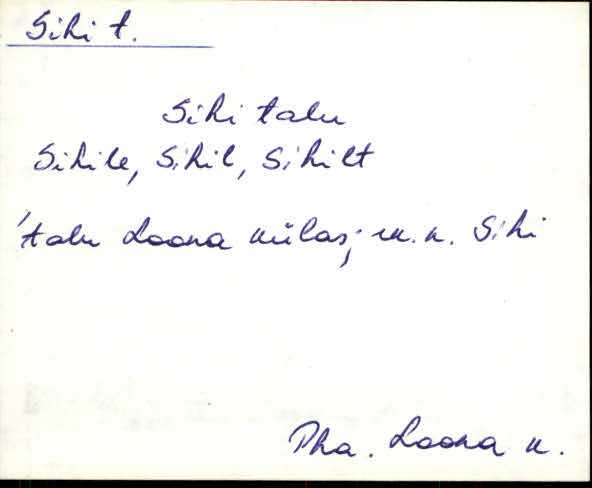 Sihi t.
Sihi talu
Sihile, Sihil, Sihilt
'talu Loona külas; m.n. Sihi
Pha. Loona k.